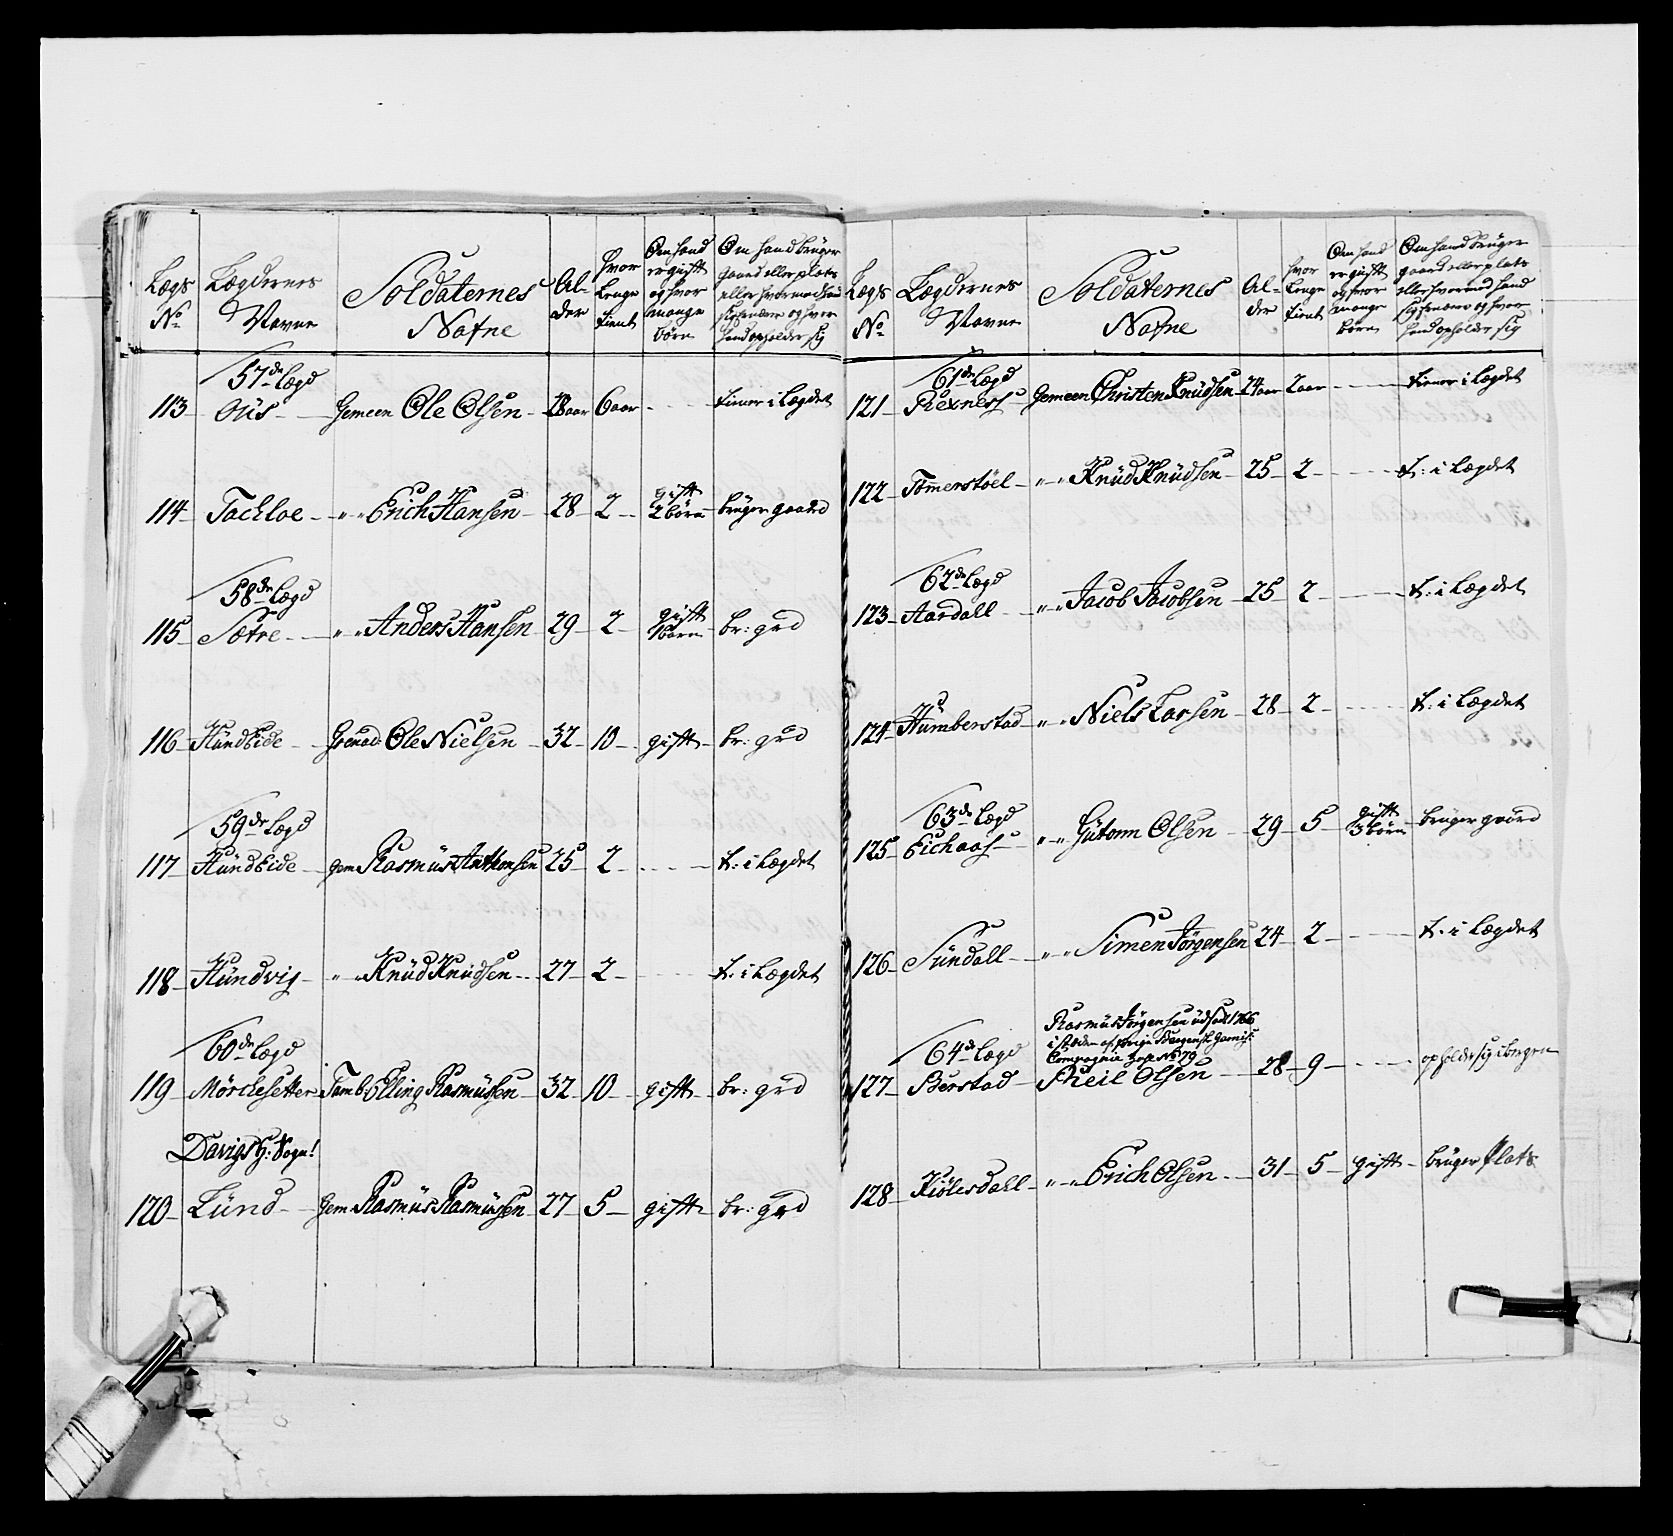 Lægs No | Lægdernes Navne | Soldaternes Nafne | Al-der | hvor Lenge tient | Om hand er gift og hvor mange børn | Om hand brüger gaard eller plats eller hvormed hand sig ernærer og hvor hand opholder sig
57de Lægd
113 Øüs Gemeen Ole Olsen 28 aar 6 aar tiener i Lægdet
114 Tackloe " " Erich Hansen 28 2 gift 2 børn brüger gaard
58de Lægd
115 Sætre " " Anders Hansen 29 2 gift 1 barn br: grd
116 Hündeide Grenad: Ole Nielsen 32 10 gift br: grd
59de Lægd
117 Hündeide gem Rasmüs Anthonsen 25 2 t: i Lægdet
118 Hündvig " " Knüd Knüdsen 27 2 t: i Lægdet
60de Lægd
119 Mörchesetter Tamb: Elling Rasmüssen 32 10 gift br: grd
Davigs H: Sogn!
120 Lünd Gem Rasmüs Rasmüssen 27 5 gift br: grd
Lægs No | Lægdernes Navne | Soldaternes Nafne | Al-der | hvor Lenge tient | Om hand er gift og hvor mange børn | Om hand brüger gaard eller plats eller hvormed hand sig ernærer og hvor hand opholder sig
61de Lægd
121 Rexness Gemeen Christen Knüdsen 24 aar 2 aar tiener i Lægdet
122 Tömerstöel " " Knüd Knüdsen 25 2 t: i Lægdet
62de Lægd
123 Aardall " " Jacob Jacobsen 25 2 t: i Lægdet
124 Humberstad " " Niels Larsen 28 2 t: i Lægdet
63de Lægd
125 Eichaas " " Gütorm Olsen 29 5 gift 3 børn brüger gaard
126 Sündall " " Simen Jörgensen 24 2 t: i Lægdet
Rasmüs Jörgensen üdsat 1766
i stæden af forige Bergensk Garnis:
Compagnie No 79
64de Lægd
127 Berstad Reil Olsen 28 9 opholder sig i bergen
128 Kiölesdall " " Erich Olsen 31 5 gift brüger plats